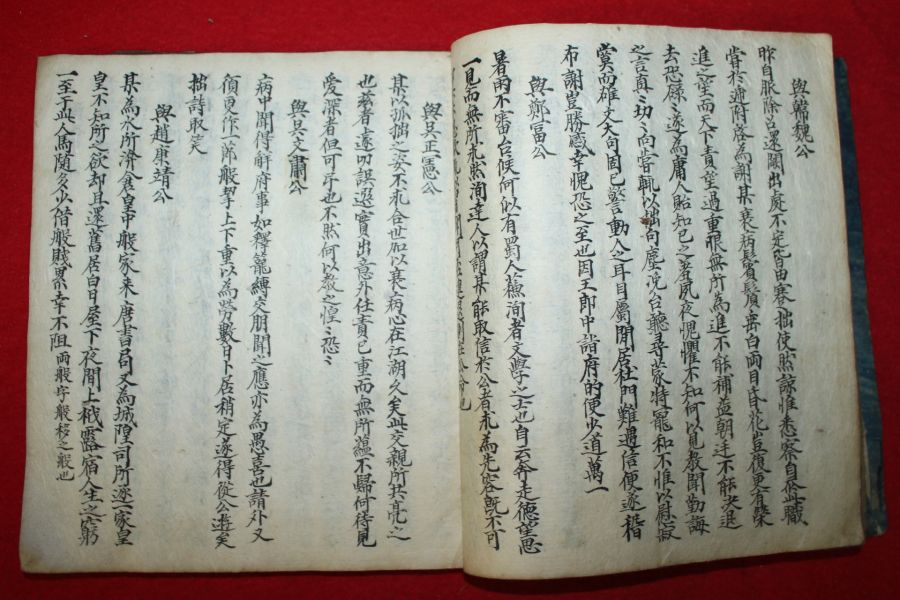 與韓魏公
昨自服除召還闕出處不定皆由蹇拙使然諒惟悉察自叅此職
嘗於逓附啓為謝某衰病鬢鬚白兩目昏花豈復更有榮
進之望而天下責望過重恨無所為進不能補益朝廷不能决退
去恐碌〻遂為庸人貽知已之羞夙夜愧懼不知何以見教聞勤誨
之言真〻切〻向嘗輒以拙句塵浼台聽尋蒙特寵和不惟以慰寂
寞而雄文大句固已警動人之耳目屬閒居杜門難遇信便遂稽
布謝豈勝感幸愧恐之至也因王郎中詣府的便少道萬一
與鄭富公
暑雨不審台候何似有蜀人蘓洵者文學之士也自云奔走德望思
一見而無所求然洵逺人以謂某能取信於公者求為先容既不可
與吴正憲公
某以孤拙之姿不求合世加以衰病心在江湖久矣此交親所共亮之
也茲者遽叨誤選實出意外任責已重而無所藴不歸何待見
愛深者但可弔也不然何以教之惶〻恐〻
與吴文肅公
病中聞得觧府事如釋籠縛交朋聞之應亦為愚喜也請外又
須更作一莭般挈上下重以為勞數日卜居稍定遂得從公遊矣
拙詩取笑
與趙康靖公
某為水所濟倉皇中般家来唐書局又為城隍司所逐一家皇
皇不知所之欲却且還舊居白日屋下夜間上栰露宿人生之窮
一至于此人馬隨多少借般賤累幸不阻 兩般字般移之般也